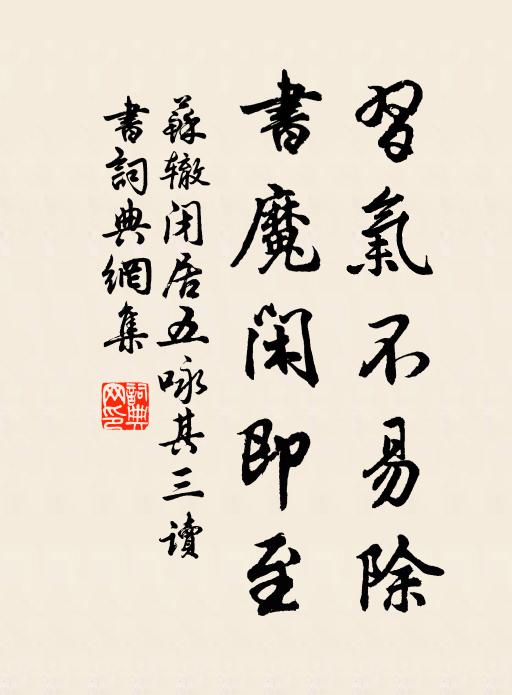 習氣不易除
書魔閑即至
蘇辙闭居五咏其三讀
書詞典網集
詞典网印